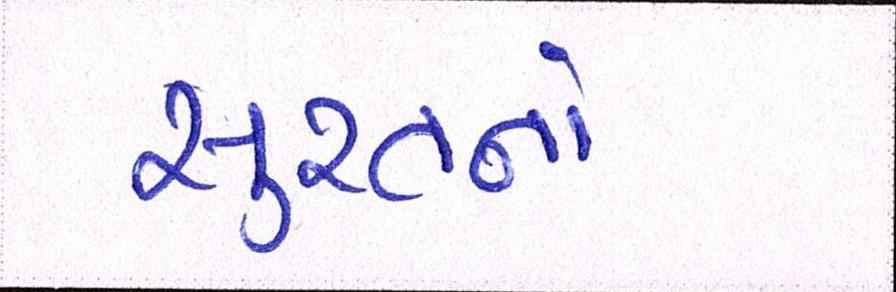 સુરતનો